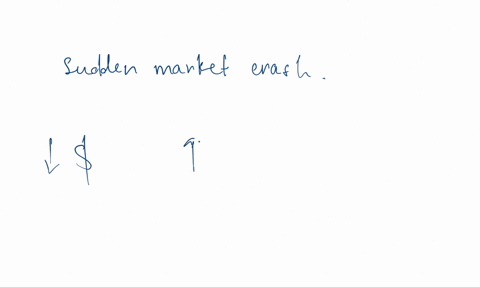 Sudden market crash.
↓ $ ↑